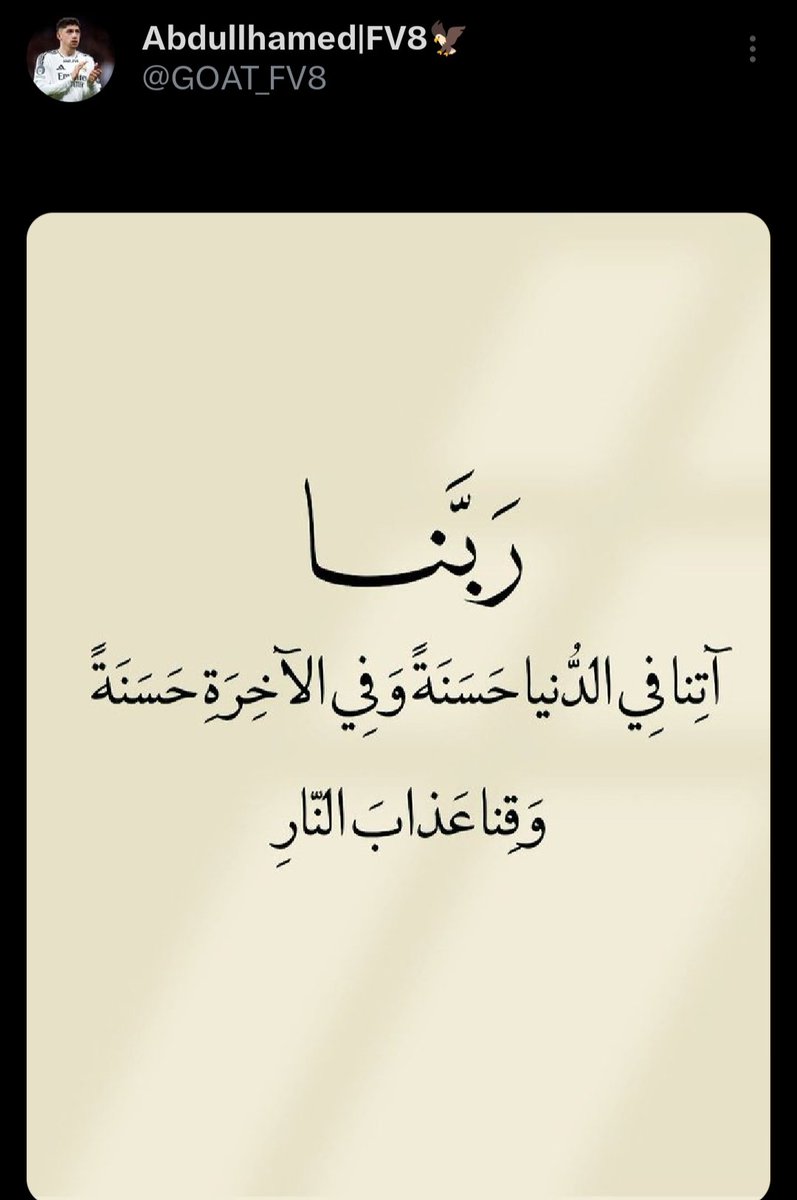 Abdullhamed|FV8🦅
@GOAT_FV8
رَبَّنا
آتِنا فِي الدُّنيا حَسَنَةً وَفِي الآخِرَةِ حَسَنَةً
وَقِنا عَذابَ النّارِ